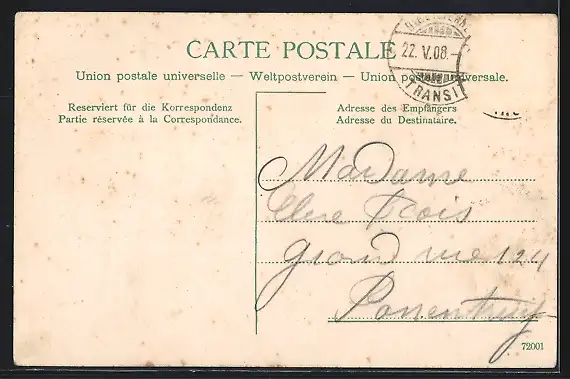 CARTE POSTALE
Union postale universelle — Weltpostverein — Union postale universale.
22. V.08.–
TRANSIT
Reserviert für die Korrespondenz
Partie réservée à la Correspondance.
Adresse des Empfängers
Adresse du Destinataire.
Madame
grand rue 124
72001